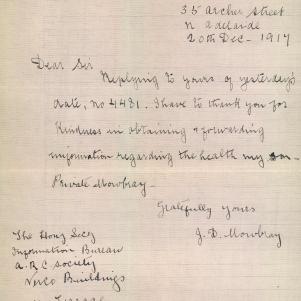 35 Archer Street
N Adelaide
20th Dec - 1917
Dear Sir
Replying to yours of yesterday's
date, no 4481. I have to thank you for
kindness in obtaining & forwarding
information regarding the health my son
Private Mowbray -
Gratefully Yours
J. D. Mowbray
The Hony Secy
Information Bureau
A.R.C Society
Verco Buildings
Terrace